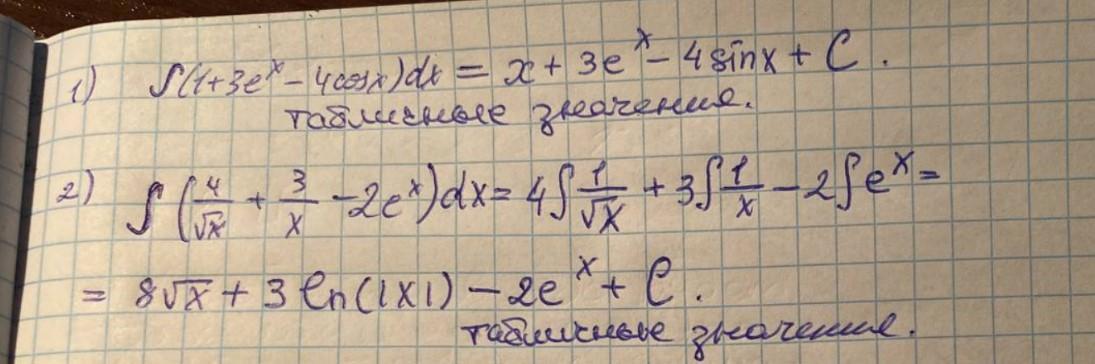 1) ∫(1+3e^x - 4cosx)dx = x + 3e^x - 4sinx + C.
табличные значения.
2) ∫(4/√x + 3/x - 2e^x)dx = 4∫1/√x + 3∫1/x - 2∫e^x =
= 8√x + 3 ln(|x|) - 2e^x + C.
табличные значения.